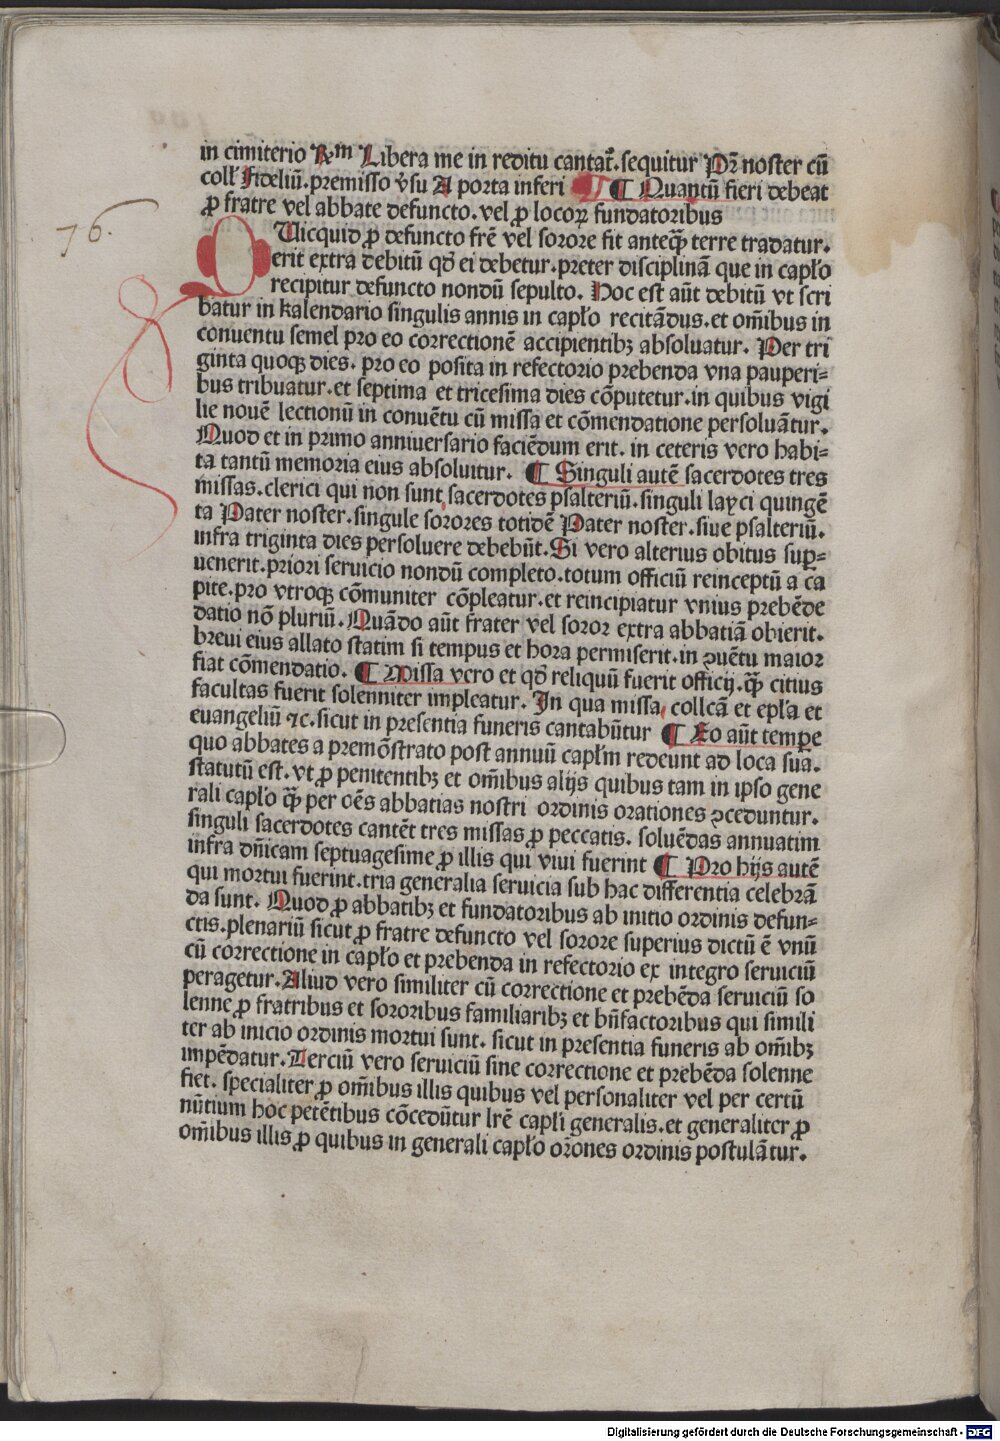 in cimiterio ℟m Libera me in reditu cantat᷑. sequitur Pr̄ noster cū
coll' Fideliū. premisso v̄su A porta inferi ¶ ¶ Quantū fieri debeat
ꝓ fratre vel abbate defuncto. vel ꝓ locoꝝ fundatoribus
76.
QUicquid ꝓ defuncto frē vel sorore fit anteq̄ꝫ terre tradatur.
erit extra debitū qd̄ ei debetur. preter disciplinā que in capło
recipitur defuncto nondū sepulto. Hoc est aūt debitū vt scri
batur in kalendario singulis annis in capło recitādus. et om̄ibus in
conuentu semel pro eo correctionē accipientibꝫ absoluatur. Per tri
ginta quoqꝫ dies. pro eo posita in refectorio prebenda vna pauperi⸗
bus tribuatur. et septima et tricesima dies cōputetur. in quibus vigi
lie nouē lectionū in conuētu cū missa et cōmendatione persoluātur.
Quod et in primo anniuersario faciēdum erit. in ceteris vero habi⸗
ta tantū memoria eius absoluitur. ¶ Singuli autē sacerdotes tres
missas. clerici qui non sunt sacerdotes psalteriū. singuli layci quingē
ta Pater noster. singule sorores totidē Pater noster. siue psalteriū.
infra triginta dies persoluere debebūt. Si vero alterius obitus sup̱⸗
uenerit. priori seruicio nondū completo. totum officiū reinceptū a ca
pite. pro vtroqꝫ cōmuniter cōpleatur. et reincipiatur vnius prebēde
datio nō pluriū. Quādo aūt frater vel soror extra abbatiā obierit.
breui eius allato statim si tempus et hora permiserit. in ꝯuētu maior
fiat cōmendatio. ¶ Missa vero et qd̄ reliquū fuerit officij. q̄ꝫ citius
facultas fuerit solenniter impleatur. In qua missa collcā et epła et
euangeliū ⁊c. sicut in presentia funeris cantabūtur ¶ Eo aūt temꝑe
quo abbates a premōstrato post annuū capłm redeunt ad loca sua.
statutū est. vt ꝓ penitentibꝫ et om̄ibus alijs quibus tam in ipso gene
rali capło q̄ꝫ per oēs abbatias nostri ordinis orationes ꝯceduntur.
singuli sacerdotes cantēt tres missas ꝓ peccatis. soluēdas annuatim
infra dn̄icam septuagesime ꝓ illis qui viui fuerint ¶ Pro hijs autē
qui mortui fuerint. tria generalia seruicia sub hac differentia celebrā
da sunt. Quod ꝓ abbatibꝫ et fundatoribus ab initio ordinis defun⸗
ctis. plenariū sicut ꝓ fratre defuncto vel sorore superius dictū ē vnū
cū correctione in capło et prebenda in refectorio ex integro seruiciū
peragetur. Aliud vero similiter cū correctione et prebēda seruiciū so
lenne ꝓ fratribus et sororibus familiaribꝫ et bn̄factoribus qui simili
ter ab inicio ordinis mortui sunt. sicut in presentia funeris ab om̄ibꝫ
impēdatur. Terciū vero seruiciū sine correctione et prebēda solenne
fiet. specialiter ꝓ om̄ibus illis quibus vel personaliter vel per certū
nūtium hoc petētibus cōcedūtur lrē capłi generalis. et generaliter ꝓ
om̄ibus illis ꝓ quibus in generali capło or̄ones ordinis postulātur.
Digitalisierung gefördert durch die Deutsche Forschungsgemeinschaft - DFG